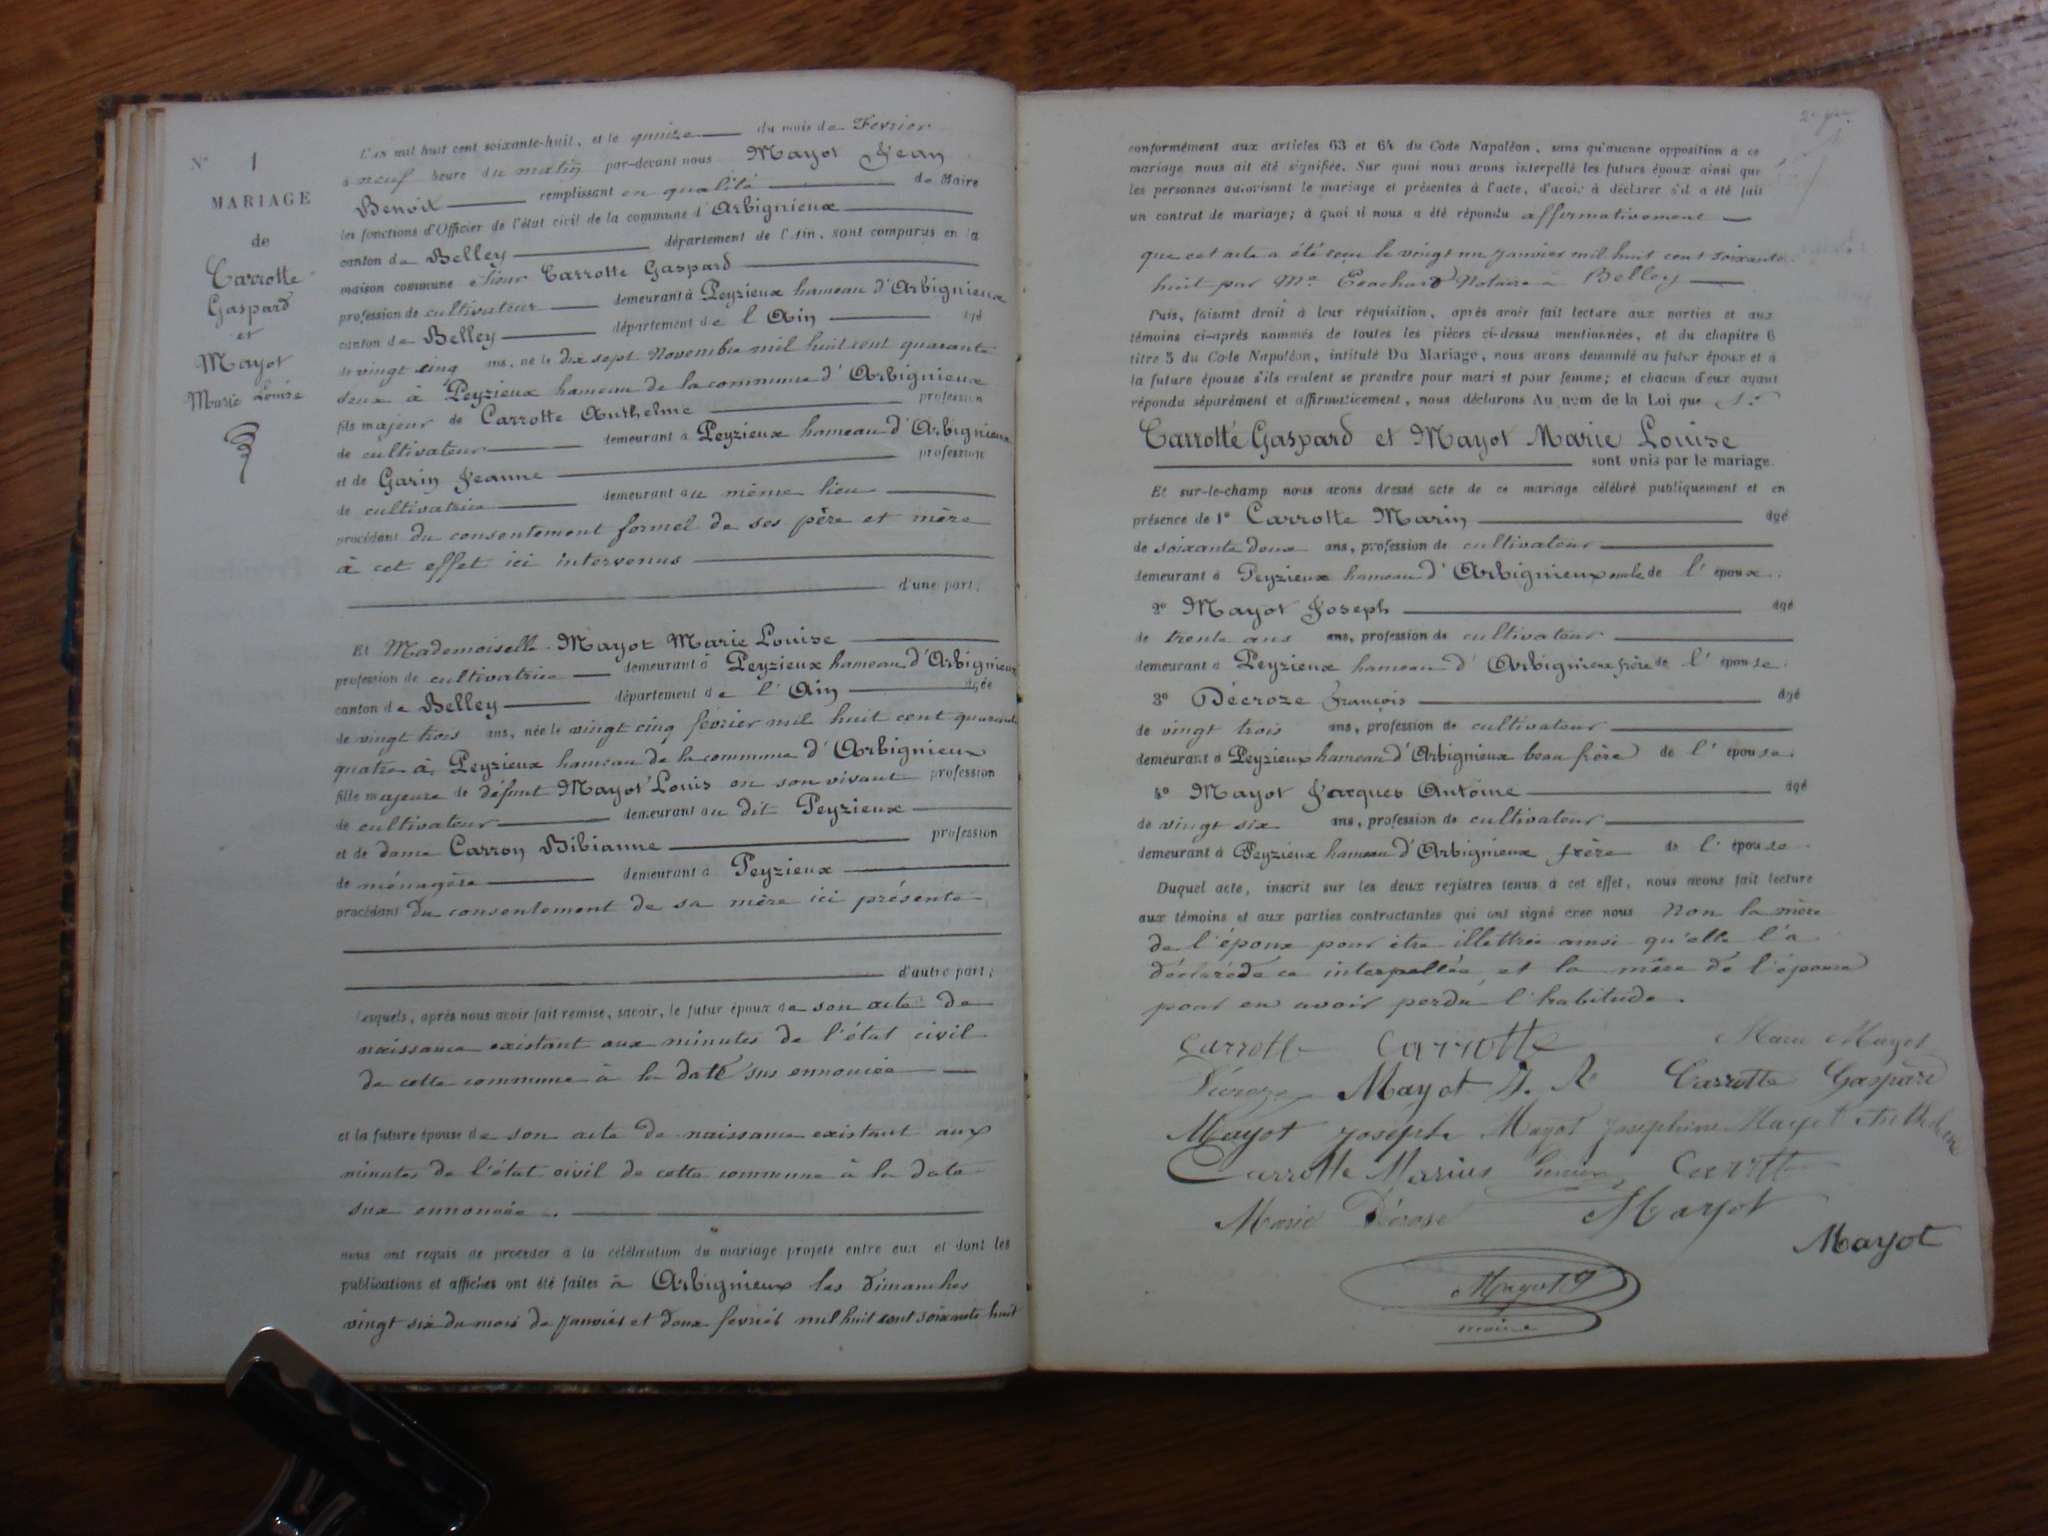 N° 1
MARIAGE
de
Carrotte
Gaspard
et
Mayot
Marie Louise
L'an mil huit cent soixante-huit, et le quinze du mois de Février
à neuf heure du matin par-devant nous Mayot Jean
Benoit remplissant en qualité de Maire
les fonctions d'Officier de l'état civil de la commune d'Arbignieux
canton de Belley département de l'Ain, sont comparus en la
maison commune sieur Carrotte Gaspard
profession de cultivateur demeurant à Peyzieux hameau d'Arbignieux
canton de Belley département de l'Ain âgé
de vingt cinq ans, né le dix sept Novembre mil huit cent quarante
deux à Peyzieux hameau de la commune d'Arbignieux
fils majeur de Carrotte Anthelme profession
de cultivateur demeurant à Peyzieux hameau d'Arbignieux
et de Garin Jeanne profession
de cultivatrice demeurant au même lieu
procédant du consentement formel de ses père et mère
à cet effet ici intervenus
d'une part;
Et Mademoiselle Mayot Marie Louise
profession de cultivatrice demeurant à Peyzieux hameau d'Arbignieux
canton de Belley département de l'Ain âgée
de vingt trois ans, née le vingt cinq février mil huit cent quarante
quatre à Peyzieux hameau de la commune d'Arbignieux
fille majeure de défunt Mayot Louis en son vivant profession
de cultivateur demeurant au dit Peyzieux
et de dame Carron Bibianne profession
de ménagère demeurant à Peyzieux
procédant du consentement de sa mère ici présente
d'autre part;
Lesquels, après nous avoir fait remise, savoir, le futur époux de son acte de
naissance existant aux minutes de l'état civil
de cette commune à la date sus ennoncée
et la future épouse de son acte de naissance existant aux
minutes de l'état civil de cette commune à la date
sus ennoncée.
nous ont requis de procéder à la célébration du mariage projeté entre eux et dont les
publications et affiches ont été faites à Arbignieux les dimanches
vingt six du mois de janvier et deux février mil huit cent soixante huit
conformément aux articles 63 et 64 du Code Napoléon, sans qu'aucune opposition à ce
mariage nous ait été signifiée. Sur quoi nous avons interpellé les futurs époux ainsi que
les personnes autorisant le mariage et présentes à l'acte, d'avoir à déclarer s'il a été fait
un contrat de mariage; à quoi il nous a été répondu affirmativement
que cet acte a été reçu le vingt un janvier mil huit cent soixante
huit par Me Notaire à Belley
Puis, faisant droit à leur réquisition, après avoir fait lecture aux parties et aux
témoins ci-après nommés de toutes les pièces ci-dessus mentionnées, et du chapitre 6
titre 5 du Code Napoléon, intitulé Du Mariage, nous avons demandé au futur époux et à
la future épouse s'ils veulent se prendre pour mari et pour femme; et chacun d'eux ayant
répondu séparément et affirmativement, nous déclarons Au nom de la Loi que Sr
Carrotte Gaspard et Mayot Marie Louise
sont unis par le mariage.
Et sur-le-champ nous avons dressé acte de ce mariage célébré publiquement et en
présence de 1° Carrotte Marin âgé
de soixante deux ans, profession de cultivateur
demeurant à Peyzieux hameau d'Arbignieux oncle de l'époux.
2° Mayot Joseph âgé
de trente ans ans, profession de cultivateur
demeurant à Peyzieux hameau d'Arbignieux frère de l'épouse.
3° Décroze François âgé
de vingt trois ans, profession de cultivateur
demeurant à Peyzieux hameau d'Arbignieux beau frère de l'épouse.
4° Mayot Jacques Antoine âgé
de vingt six ans, profession de cultivateur
demeurant à Peyzieux hameau d'Arbignieux frère de l'épouse.
Duquel acte, inscrit sur les deux registres tenus à cet effet, nous avons fait lecture
aux témoins et aux parties contractantes qui ont signé avec nous Non la mère
de l'époux pour être illettrée ainsi qu'elle l'a
déclaré de ce interpellée et la mère de l'épouse
pour en avoir perdu l'habitude.
Carrotte Carrotte Marie Mayot
Décroze Mayot J. Carrotte Gaspard
Mayot joseph Mayot josephine Mayot Anthelme
Carrotte Marius Carrotte
Marie Mayot
Mayot
Mayot
maire